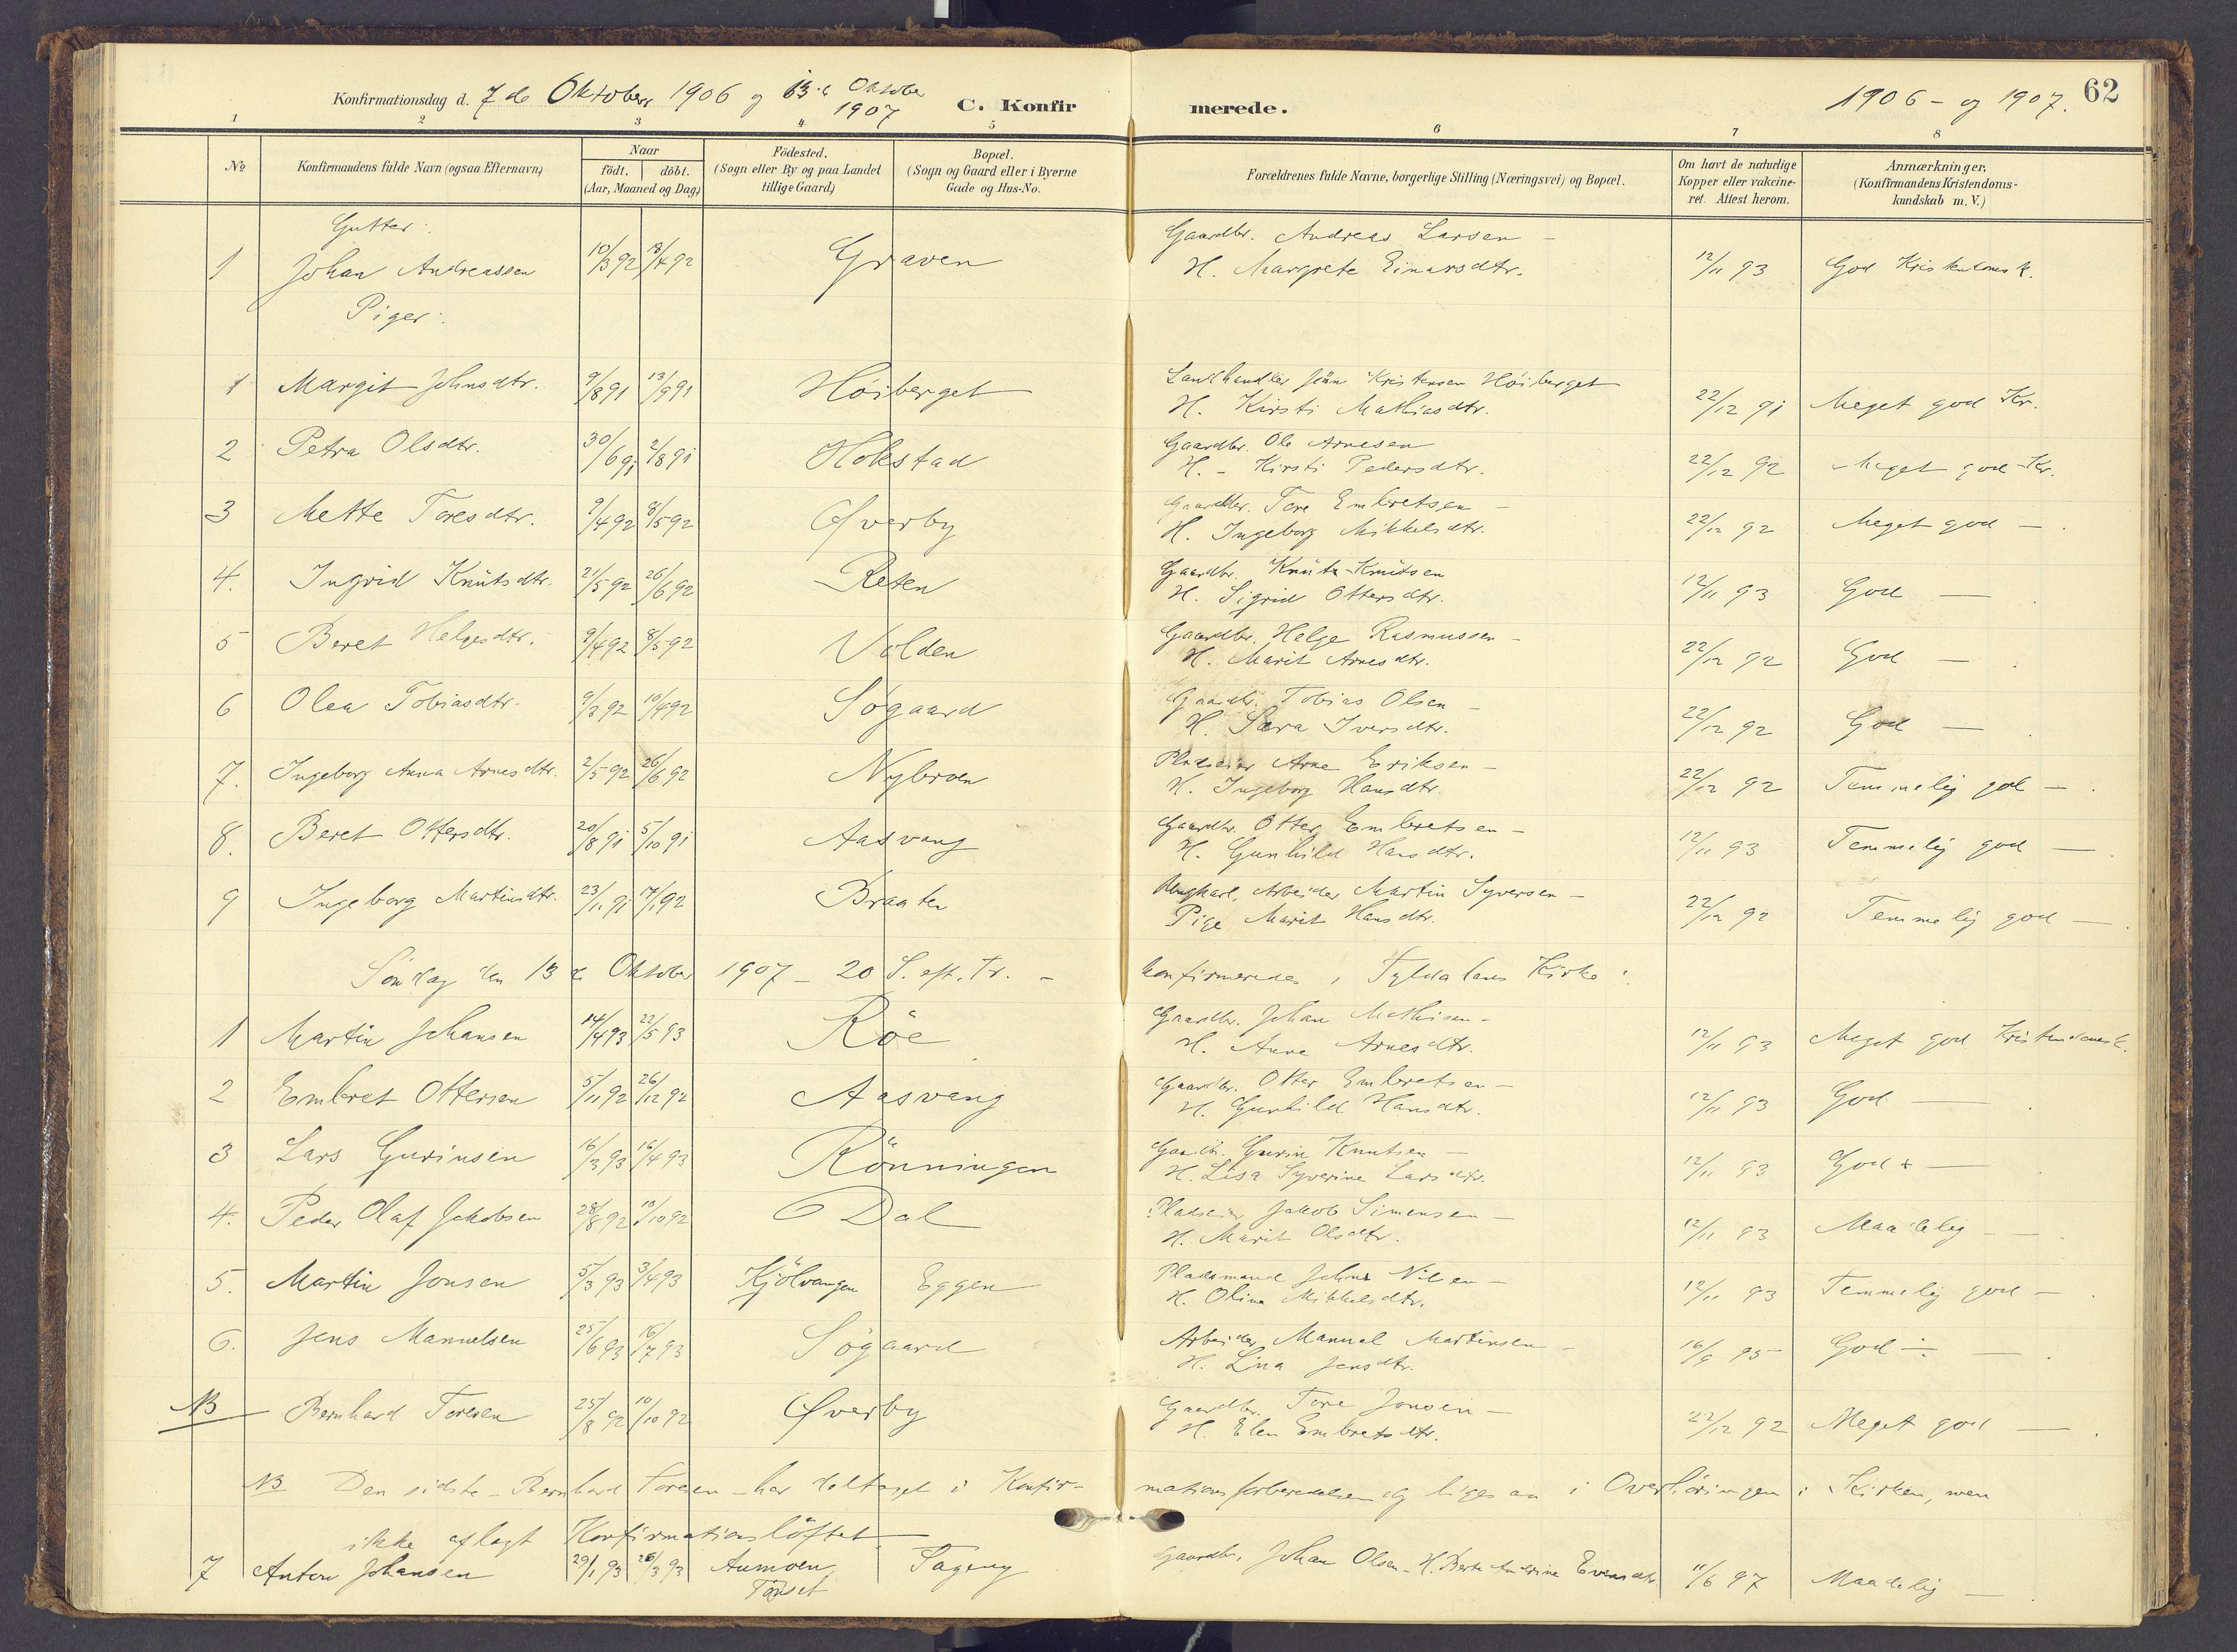 62
Konfirmationsdag d. 7de Oktober 1906 og 13de Oktober 1907
C. Konfirmerede.
1906 - og 1907.
1 2 3 4 5 6 7 8
No
Konfirmandens fulde Navn (ogsaa Efternavn)
Naar
födt. döbt.
(Aar, Maaned og Dag)
Födested.
(Sogn eller By og paa Landet
tillige Gaard)
Bopæl.
(Sogn og Gaard eller i Byerne
Gade og Hus-No.
Forældrenes fulde Navne, borgerlige Stilling (Næringsvei) og Bopæl.
Om havt de naturlige
Kopper eller vakcine-
ret. Attest herom.
Anmærkninger.
(Konfirmandens Kristendoms-
kundskab m. V.)
Gutter:
1 Johan Andreassen 10/3 92 18/4 92 Graven Gaardbr. Andreas Larsen -
H. Margrete Einarsdtr. 12/11 93 God Kristendomsk.
Piger:
1 Margit Johnsdtr. 9/8 91 13/9 91 Höiberget Landhandler Jönn Kristensen Höiberget
H. Kirsti Mathiasdtr. 22/12 91 Meget god Kr.
2 Petra Olsdtr. 30/6 91 2/8 91 Hokstad Gaardbr. Ole Arnesen
H. - Kirsti Pedersdtr. 22/12 92 Meget god Kr.
3 Mette Toresdtr. 9/4 92 8/5 92 Øverby Gaardbr. Tore Embretsen -
H. Ingeborg Mikkelsdtr. 22/12 92 Meget god -
4. Ingrid Knutsdtr. 21/5 92 26/6 92 Reten Gaardbr. Knut Knutsen
H. Sigrid Ottersdtr. 12/11 93 God -
5 Beret Helgesdtr. 9/4 92 8/5 92 Volden Gaardbr. Helge Rasmussen -
H. Marit Arnesdtr. 22/12 92 God -
6 Olea Tobiasdtr. 9/3 92 10/4 92 Sögaard Gaardbr. Tobias Olsen -
H. Sara Iversdtr. 22/12 92 God -
7. Ingeborg Anna Arnesdtr. 2/5 92 26/6 92 Nybroen Pladseier Arne Eriksen -
H. Ingeborg Hansdtr. 22/12 92 Temmelig god -
8. Beret Ottersdtr. 20/8 91 5/10 91 Aasvang Gaardbr. Otter Embretsen -
H. Gunhild Hansdtr. 12/11 93 Temmelig god -
9 Ingeborg Martinsdtr. 23/11 91 17/1 92 Braaten Ungkarl, Arbeider Martin Syversen -
Pige Marit Hansdtr. 22/12 92 Temmelig god -
Söndag den 13de Oktober 1907 - 20 S. eft. Tr. - konfirmeredes i Tyldalens Kirke:
1 Martin Johansen 14/4 93 22/5 93 Röe Gaardbr. Johan Mathisen -
H. Anne Arnesdtr. 12/11 93 Meget god Kristendomsk.
2 Embret Ottersen 5/11 92 26/12 92 Aasvang Gaardbr. Otter Embretsen -
H. Gunhild Hansdtr. 12/11 93 God -
3 Lars Gurinsen 16/3 93 16/4 93 Rönningen Gaardb. Gurin Knutsen -
H. Lisa Syverine Larsdtr. 12/11 93 God + -
4. Peder Olaf Jakobsen 28/8 92 10/10 92 Dal Pladseier Jakob Simensen -
H. Marit Olsdtr. 12/11 93 Maadelig -
5. Martin Jonsen 5/3 93 3/4 93 Kjölvangen Eggen Pladsmand John Nilsen -
H. Oline Mikkelsdtr. 12/11 93 Temmelig god -
6. Jens Manuelsen 25/6 93 16/7 93 Sögaard Arbeider Manuel Martinsen -
H. Lina Jensdtr. 16/9 95 God ÷ -
NB Bernhard Toresen 25/8 92 10/10 92 Øverby Gaardbr. Tore Jonsen -
H. Elen Embretsdtr. 22/12 92 Meget god -
NB Den sidste - Bernhard Toresen - har deltaget i Konfirmationsforberedelsen og ligesaa i Overhöringen i Kirken, men
ikke aflagt Konfirmationslöftet.
7 Anton Johansen 29/1 93 26/3 93 Aumoen, Tönset Gaardbr. Johan Olsen - H. Evensdtr. 11/6 97 Maadelig -